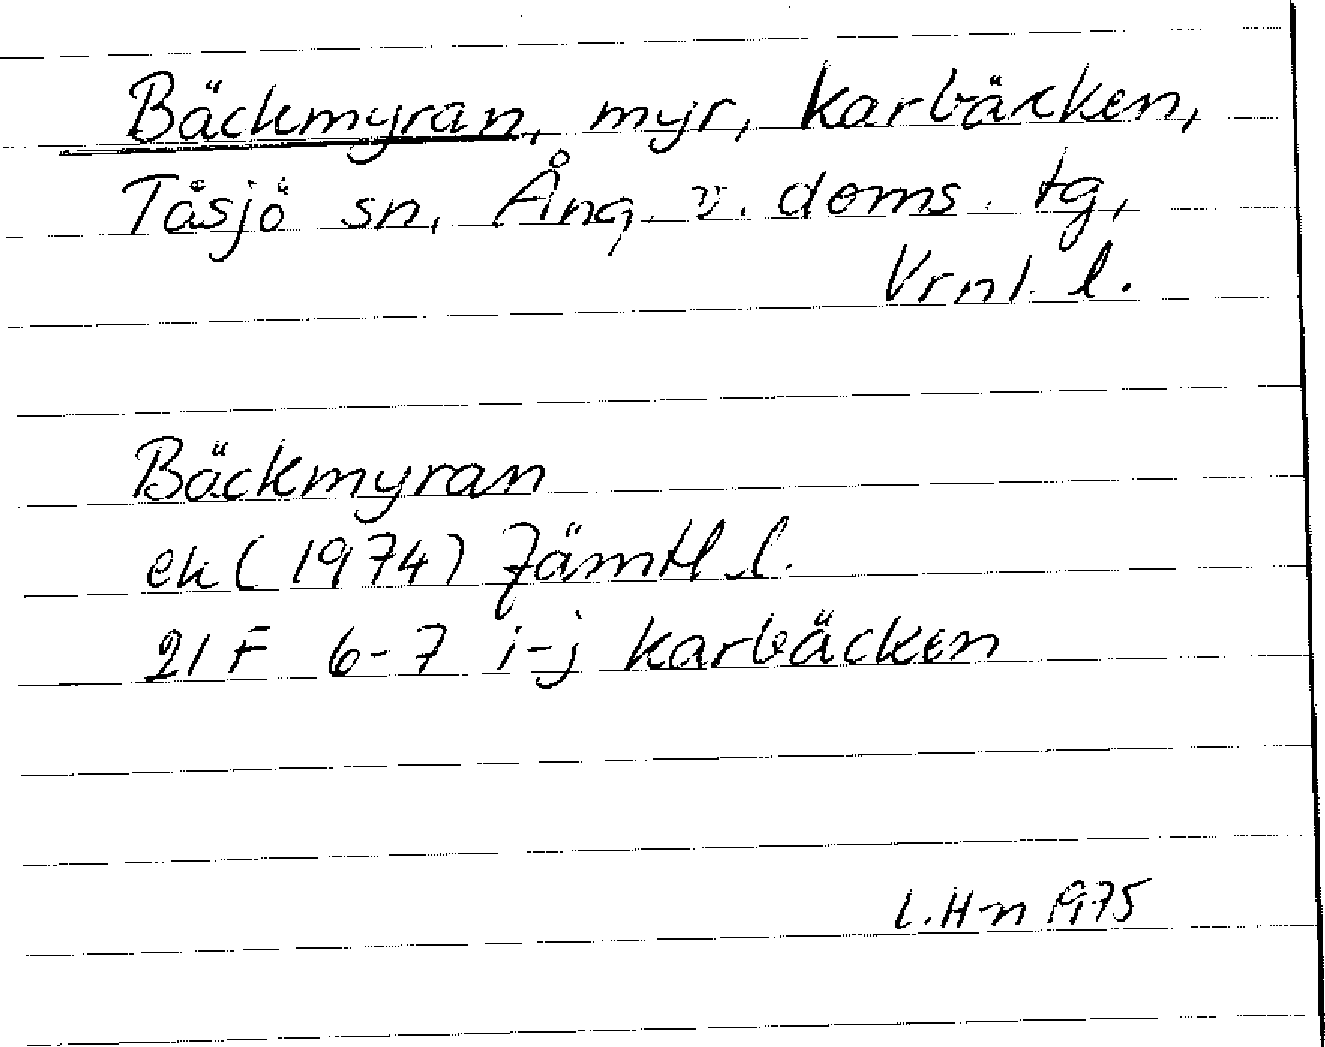 Bäckmyran, myr, Karbäcken,
Tåsjö sn, Ång. v. doms. tg,
Vrnl. l.
Bäckmyran
ek (1974) Jämtl l.
21 F 6-7 i-j Karbäcken
L. H-n 1975